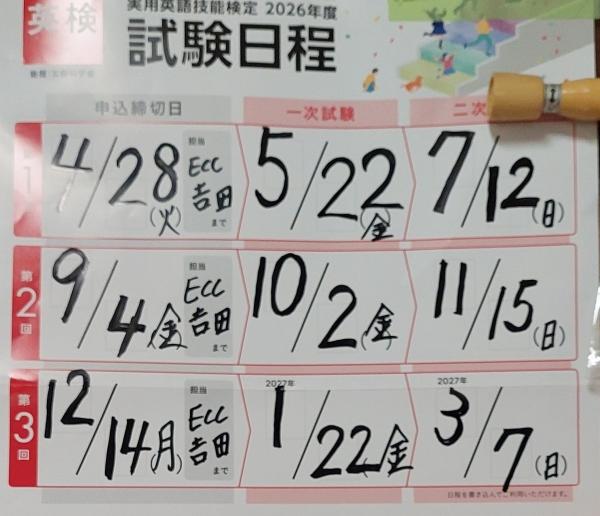 英検
実用英語技能検定 2026年度
試験日程
申込締切日 一次試験 二次
1
4/28(火) 担当 ECC 吉田 まで
5/22(金)
7/12(日)
第2回
9/4(金) 担当 ECC 吉田 まで
10/2(金)
11/15(日)
第3回
12/14(月) 担当 ECC 吉田 まで
2027年 1/22(金)
2027年 3/7(日)
日程を書き込んでご利用いただけます。